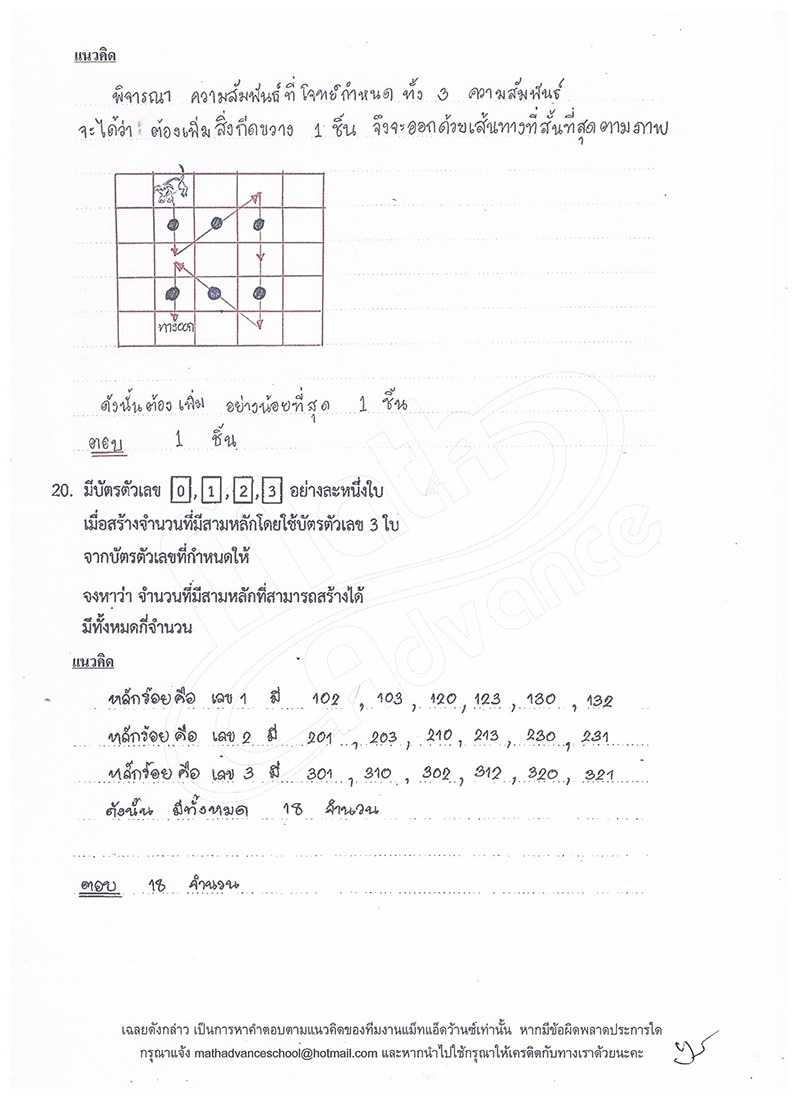 แนวคิด
พิจารณา ความสัมพันธ์ที่โจทย์กำหนด ทั้ง 3 ความสัมพันธ์
จะได้ว่า ต้องเพิ่มสิ่งกีดขวาง 1 ชิ้น จึงจะออกด้วยเส้นทางที่สั้นที่สุดตามภาพ
ทางออก
ดังนั้นต้องเพิ่ม อย่างน้อยที่สุด 1 ชิ้น
ตอบ 1 ชิ้น
20. มีบัตรตัวเลข 0 , 1 , 2 , 3 อย่างละหนึ่งใบ
เมื่อสร้างจำนวนที่มีสามหลักโดยใช้บัตรตัวเลข 3 ใบ
จากบัตรตัวเลขที่กำหนดให้
จงหาว่า จำนวนที่มีสามหลักที่สามารถสร้างได้
มีทั้งหมดกี่จำนวน
แนวคิด
หลักร้อยคือ เลข 1 มี 102 , 103 , 120 , 123 , 130 , 132
หลักร้อยคือ เลข 2 มี 201 , 203 , 210 , 213 , 230 , 231
หลักร้อยคือ เลข 3 มี 301 , 310 , 302 , 312 , 320 , 321
ดังนั้น มีทั้งหมด 18 จำนวน
ตอบ 18 จำนวน
Math Advance
เฉลยดังกล่าว เป็นการหาคำตอบตามแนวคิดของทีมงานแม็ทแอ็ดว้านซ์เท่านั้น หากมีข้อผิดพลาดประการใด
กรุณาแจ้ง mathadvanceschool@hotmail.com และหากนำไปใช้กรุณาให้เครดิตกับทางเราด้วยนะคะ